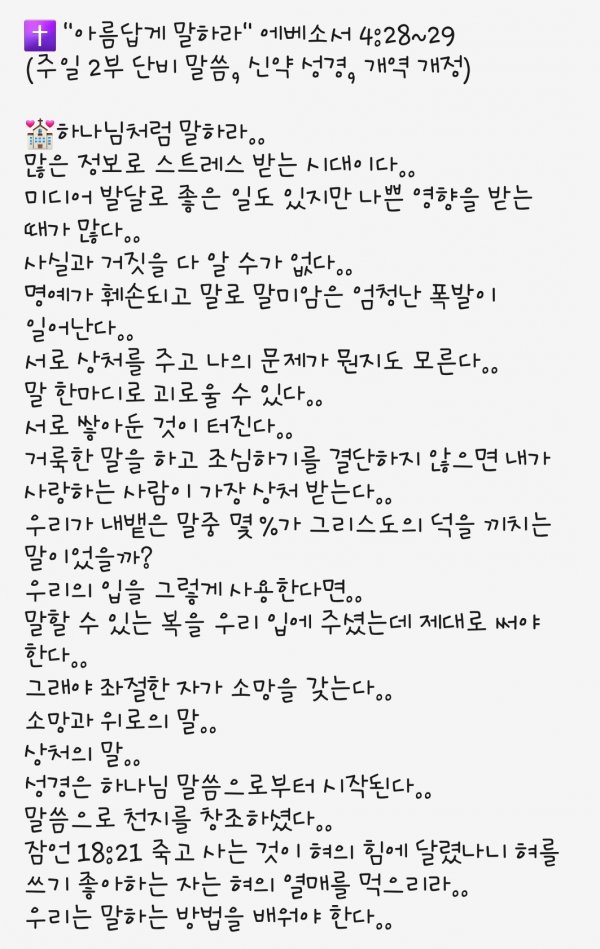 ✝️ "아름답게 말하라" 에베소서 4:28~29
(주일 2부 단비 말씀, 신약 성경, 개역 개정)
💒하나님처럼 말하라..
많은 정보로 스트레스 받는 시대이다..
미디어 발달로 좋은 일도 있지만 나쁜 영향을 받는
때가 많다..
사실과 거짓을 다 알 수가 없다..
명예가 훼손되고 말로 말미암은 엄청난 폭발이
일어난다..
서로 상처를 주고 나의 문제가 뭔지도 모른다..
말 한마디로 괴로울 수 있다..
서로 쌓아둔 것이 터진다..
거룩한 말을 하고 조심하기를 결단하지 않으면 내가
사랑하는 사람이 가장 상처 받는다..
우리가 내뱉은 말중 몇%가 그리스도의 덕을 끼치는
말이었을까?
우리의 입을 그렇게 사용한다면..
말할 수 있는 복을 우리 입에 주셨는데 제대로 써야
한다..
그래야 좌절한 자가 소망을 갖는다..
소망과 위로의 말..
상처의 말..
성경은 하나님 말씀으로부터 시작된다..
말씀으로 천지를 창조하셨다..
잠언 18:21 죽고 사는 것이 혀의 힘에 달렸나니 혀를
쓰기 좋아하는 자는 혀의 열매를 먹으리라..
우리는 말하는 방법을 배워야 한다..